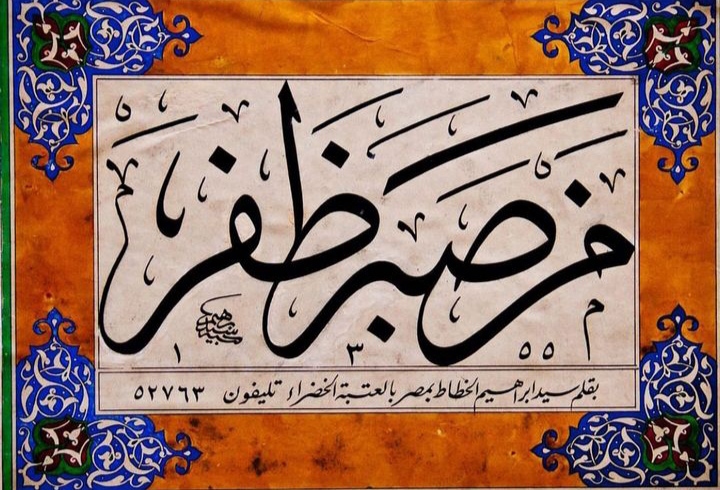 من صبر ظفر
١٣٥٥
بقلم سيد ابراهيم الخطاط بمصر بالعتبة الخضراء تليفون ٥٢٧٦٣